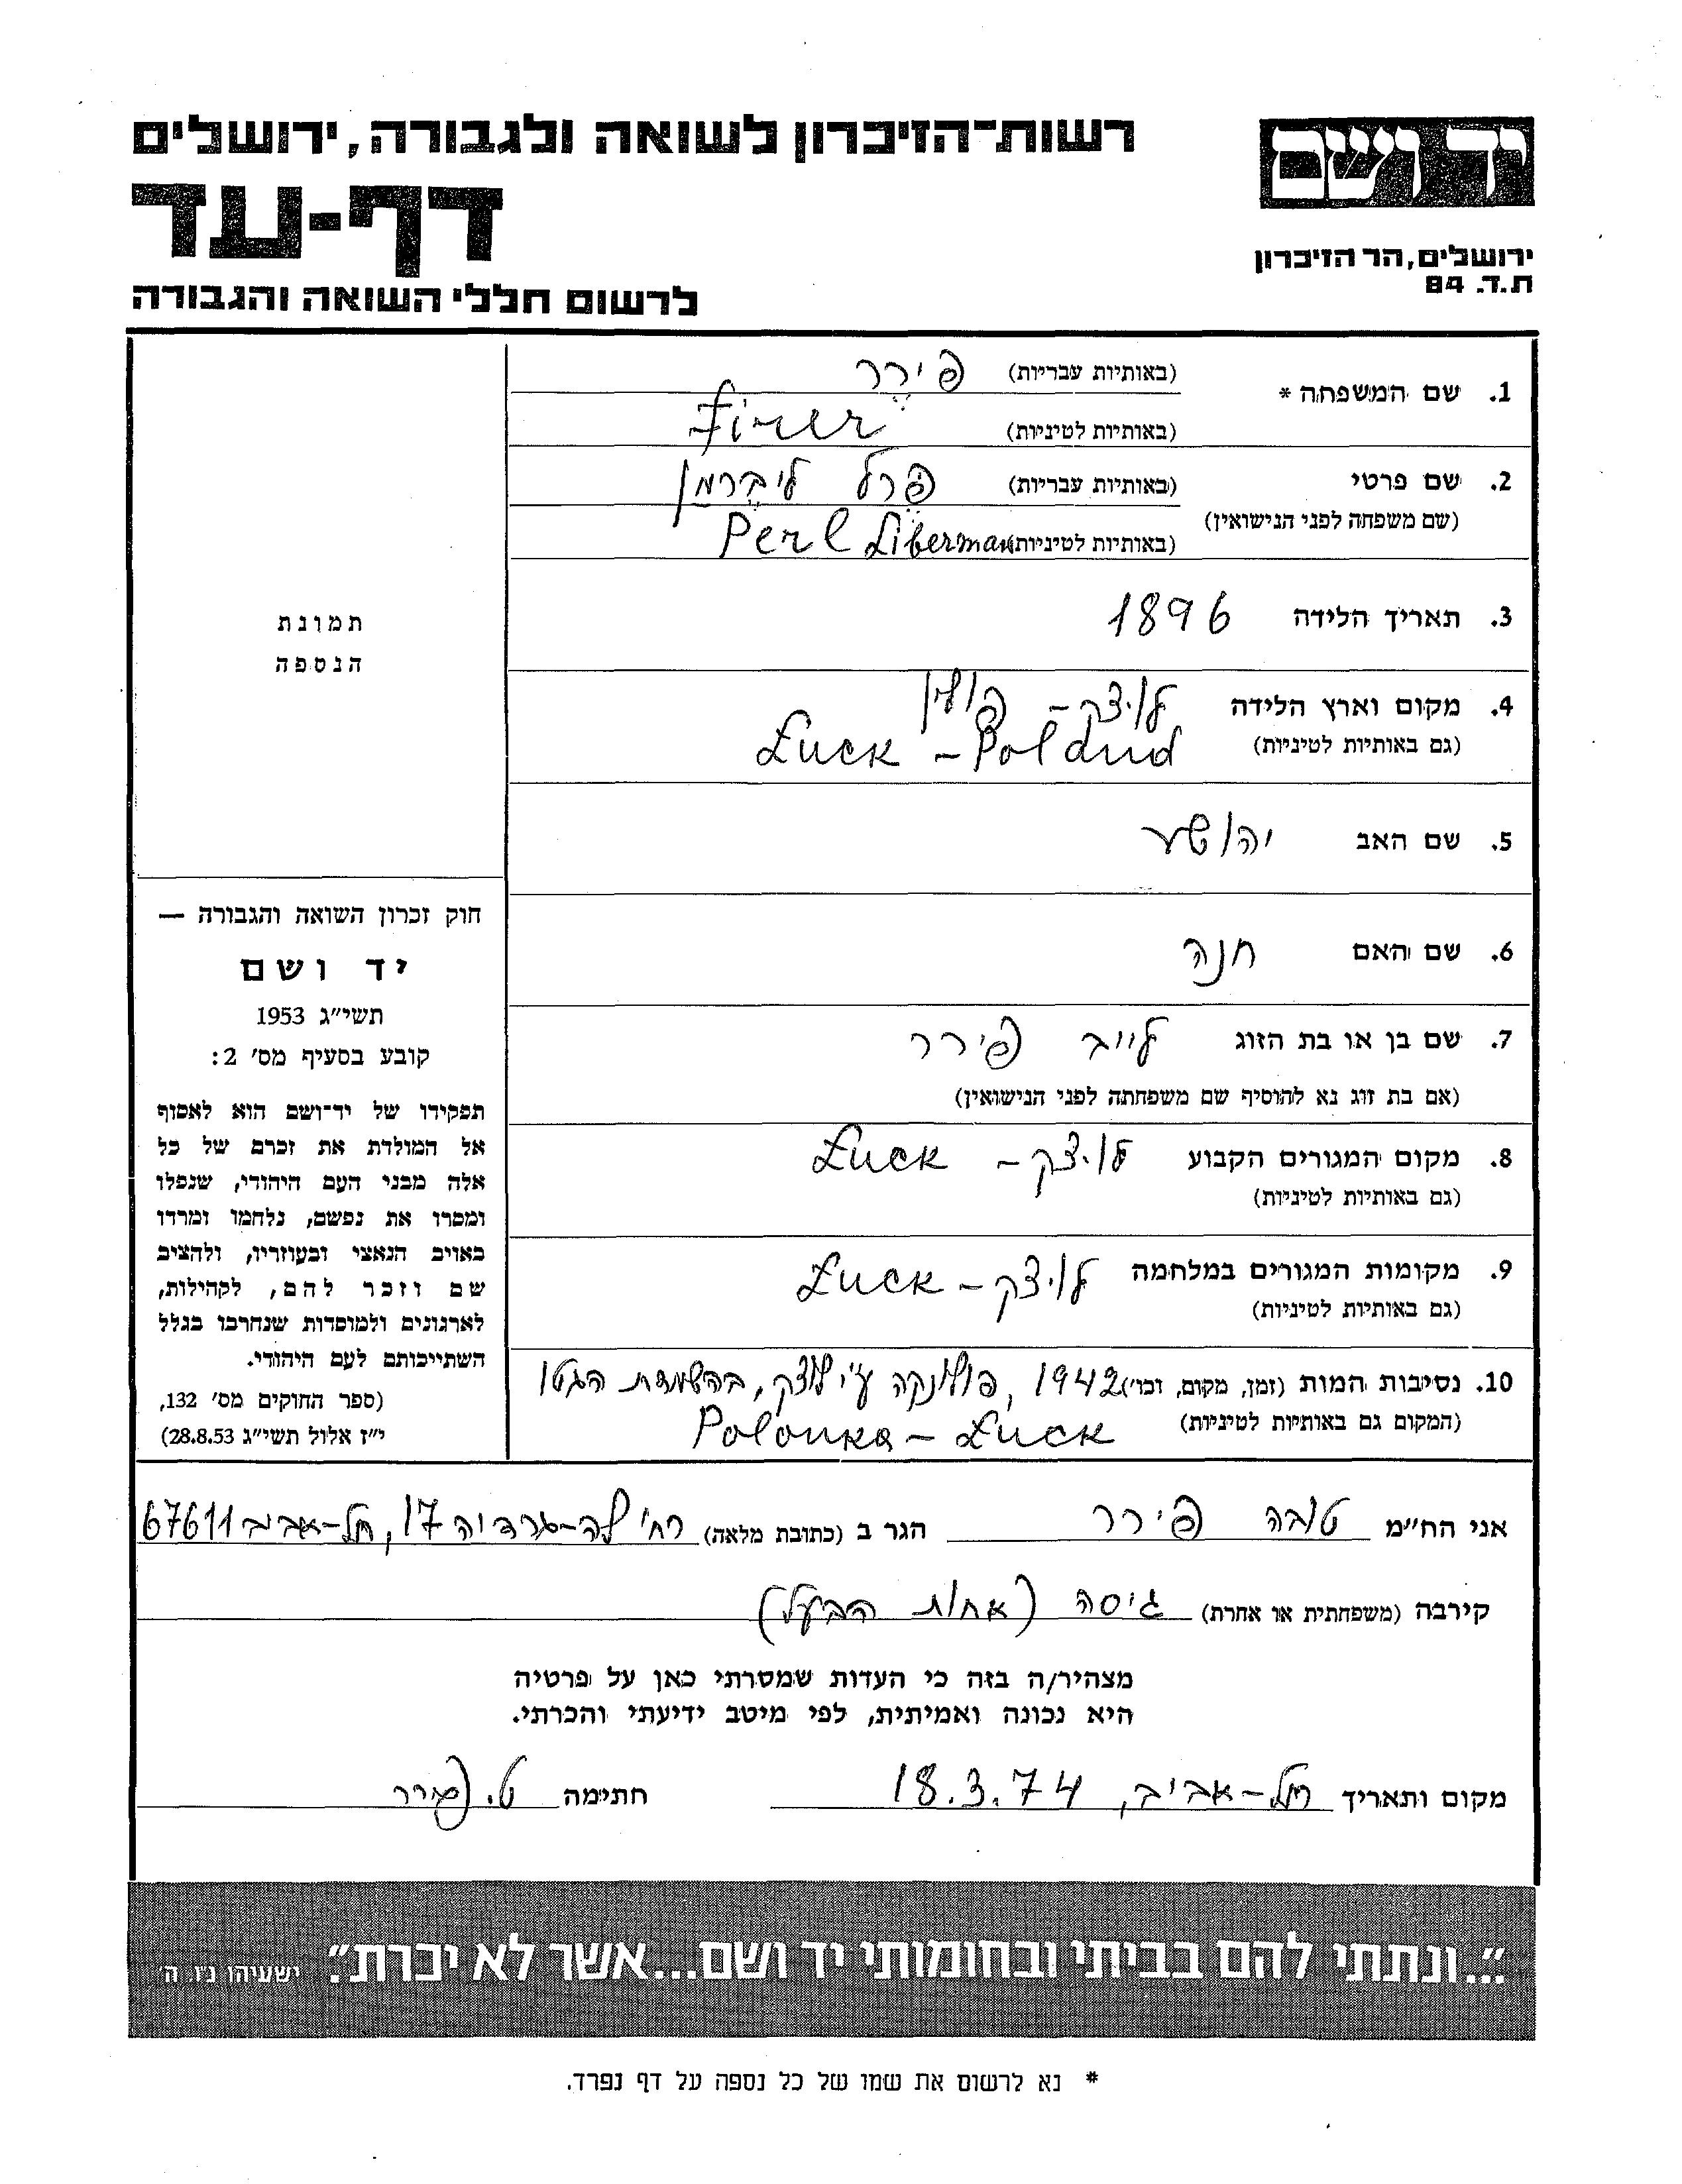 רשות־הזיכרון לשואה ולגבורה, ירושלים
דף-עד
לרשום חללי השואה והגבורה
יד ושם
ירושלים, הר הזיכרון
ת.ד. 84
1. שם המשפחה * (באותיות עבריות) פירר
(באותיות לטיניות) Firer
2. שם פרטי (באותיות עבריות) פרל ליברמן
(שם משפחה לפני הנישואין)
(באותיות לטיניות) Perl Liberman
3. תאריך הלידה 1896
4. מקום וארץ הלידה לוצק – פולין
(גם באותיות לטיניות) Łuck – Poland
5. שם האב יהושע
6. שם האם חנה
7. שם בן או בת הזוג לייב פירר
(אם בת זוג נא להוסיף שם משפחתה לפני הנישואין)
8. מקום המגורים הקבוע לוצק – Łuck
(גם באותיות לטיניות)
9. מקומות המגורים במלחמה לוצק – Łuck
(גם באותיות לטיניות)
10. נסיבות המות (זמן, מקום, וכו') 1942, פולונקה ע"י לוצק, בהשמדת הגטו
(המקום גם באותיות לטיניות) Polonka – Łuck
תמונת
הנספה
חוק זכרון השואה והגבורה —
יד ושם
תשי"ג 1953
קובע בסעיף מס' 2:
תפקידו של יד־ושם הוא לאסוף
אל המולדת את זכרם של כל
אלה מבני העם היהודי, שנפלו
ומסרו את נפשם, נלחמו ומרדו
באויב הנאצי ובעוזריו, ולהציב
שם וזכר להם, לקהילות,
לארגונים ולמוסדות שנחרבו בגלל
השתייכותם לעם היהודי.
(ספר החוקים מס' 132,
י"ז אלול תשי"ג 28.8.53)
אני הח"מ טובה פירר הגר ב (כתובת מלאה) רח' לה-גרדיה 17, תל-אביב 67611
קירבה (משפחתית או אחרת) גיסה (אחות הבעל)
מצהיר/ה בזה כי העדות שמסרתי כאן על פרטיה
היא נכונה ואמיתית, לפי מיטב ידיעתי והכרתי.
מקום ותאריך תל-אביב, 18.3.74 חתימה ט. פירר
"...ונתתי להם בביתי ובחומותי יד ושם...אשר לא יכרת". ישעיהו נ"ו, ה'
* נא לרשום את שמו של כל נספה על דף נפרד.